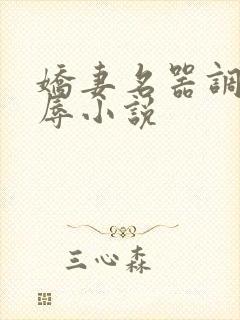 嬌妻名器調
辱小説
三心森